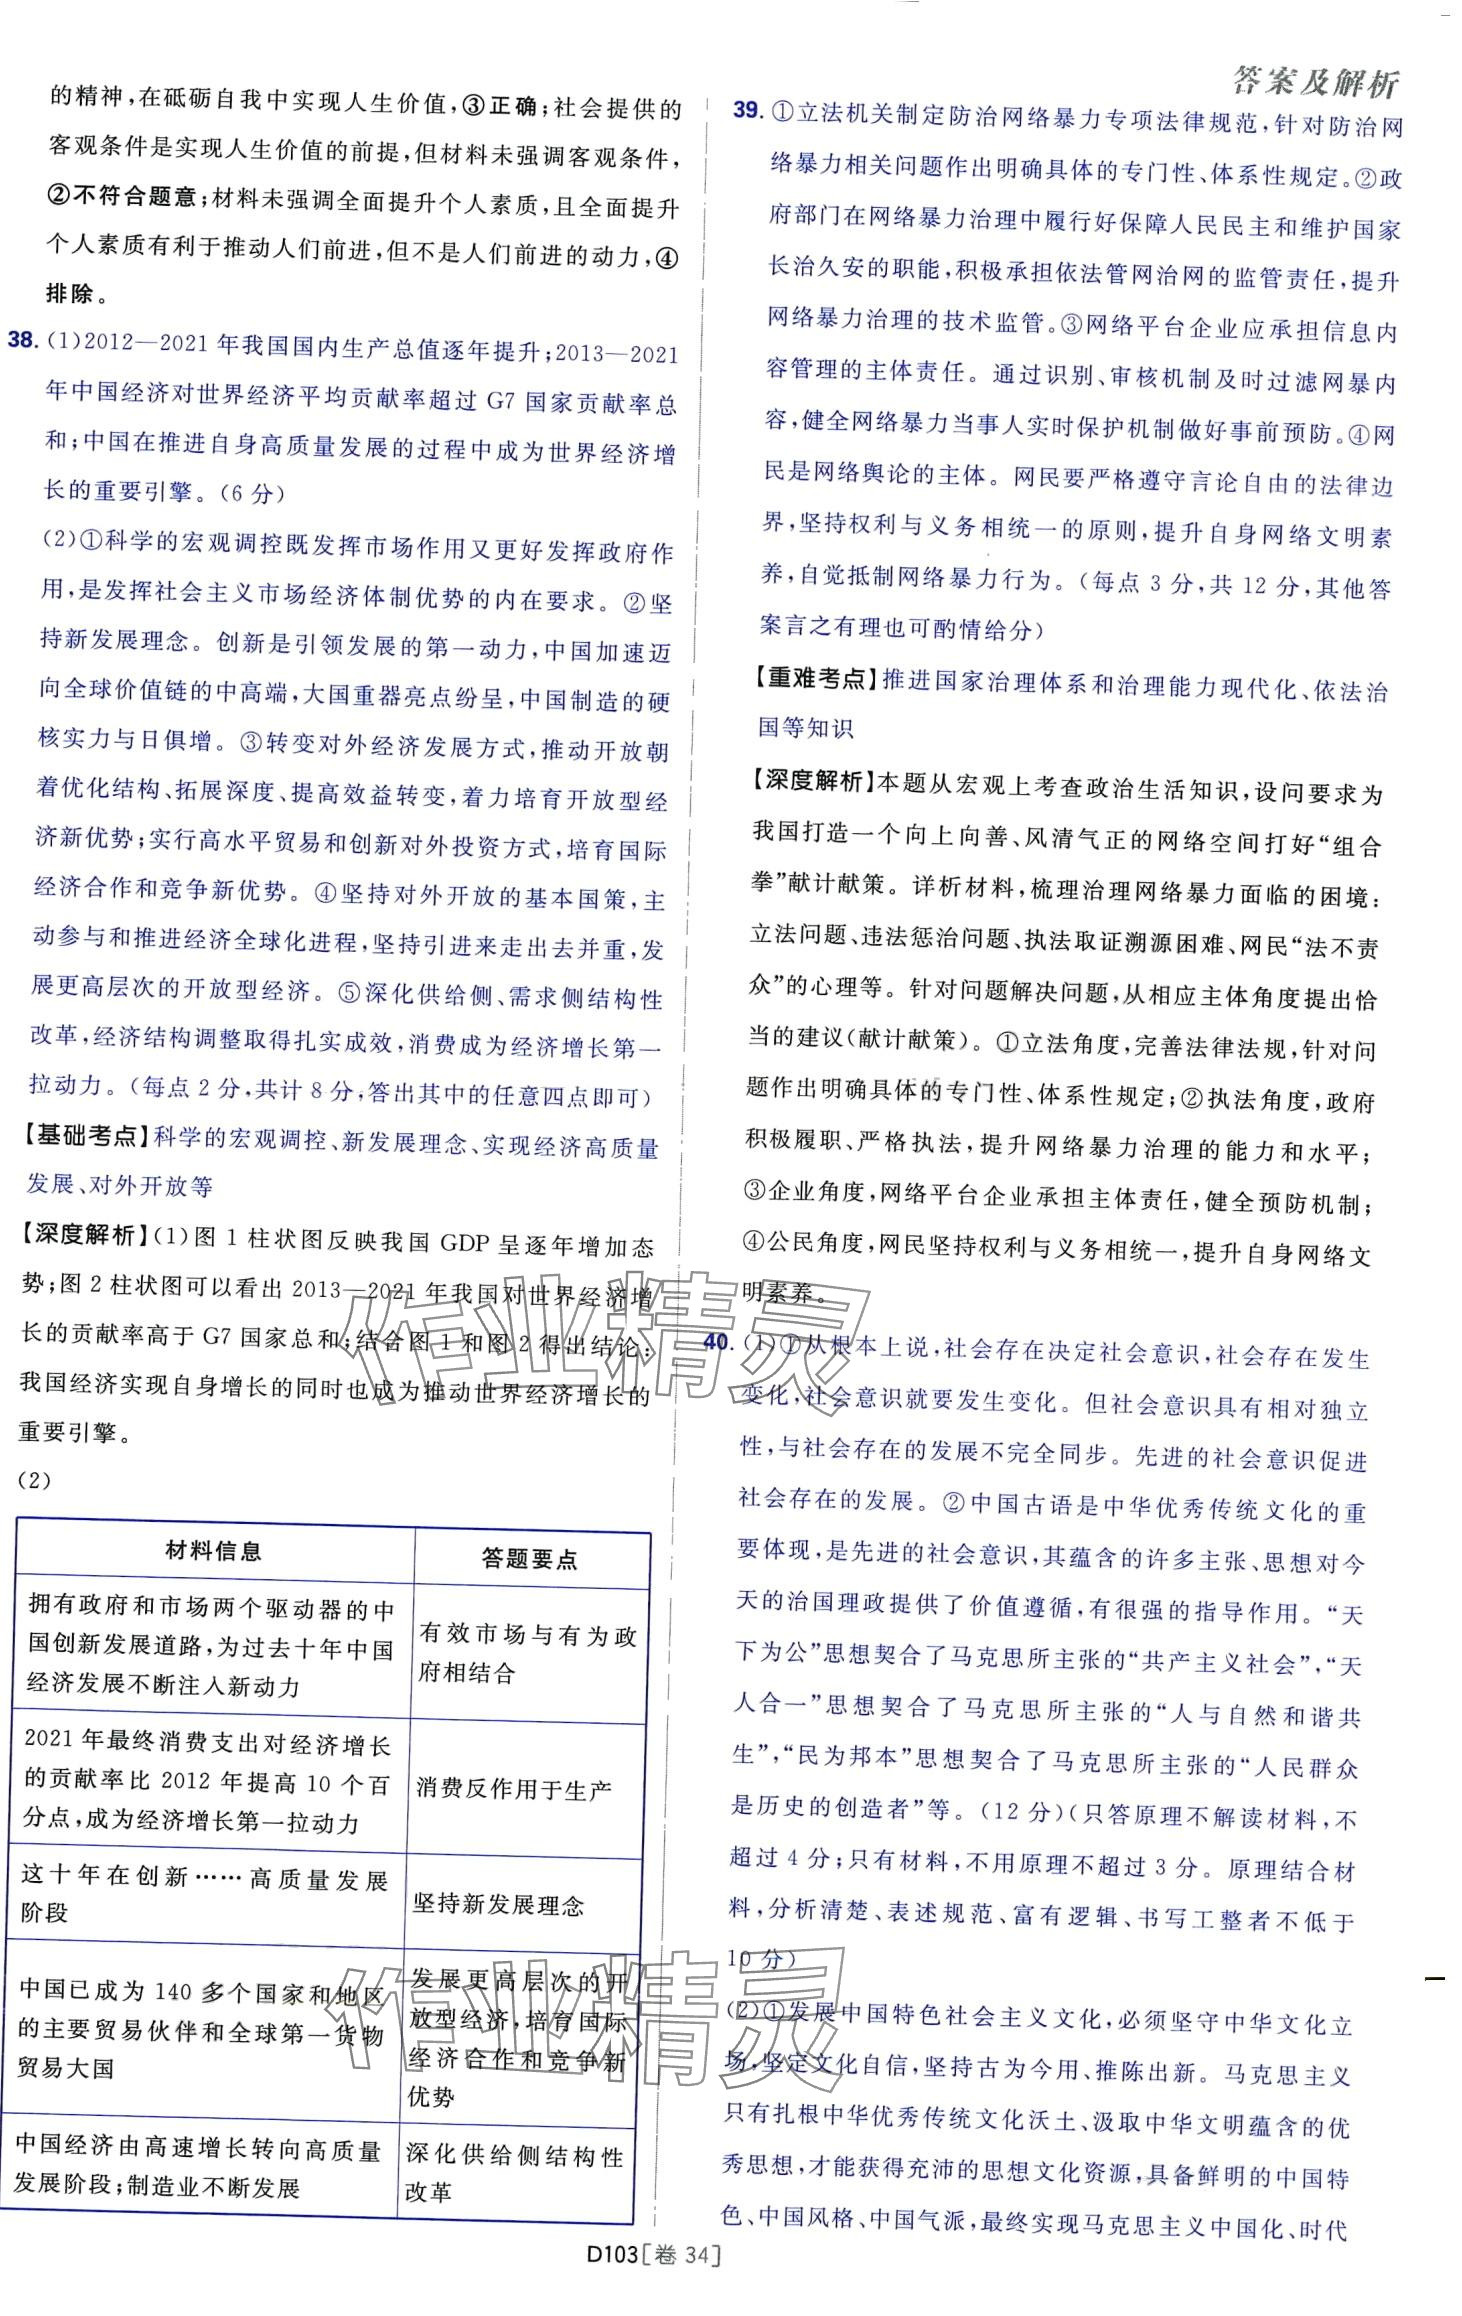 答案及解析
的精神,在砥砺自我中实现人生价值,③正确;社会提供的
客观条件是实现人生价值的前提,但材料未强调客观条件,
②不符合题意;材料未强调全面提升个人素质,且全面提升
个人素质有利于推动人们前进,但不是人们前进的动力,④
排除。
38. (1)2012—2021 年我国国内生产总值逐年提升;2013—2021
年中国经济对世界经济平均贡献率超过 G7 国家贡献率总
和;中国在推进自身高质量发展的过程中成为世界经济增
长的重要引擎。(6 分)
(2)①科学的宏观调控既发挥市场作用又更好发挥政府作
用,是发挥社会主义市场经济体制优势的内在要求。②坚
持新发展理念。创新是引领发展的第一动力,中国加速迈
向全球价值链的中高端,大国重器亮点纷呈,中国制造的硬
核实力与日俱增。③转变对外经济发展方式,推动开放朝
着优化结构、拓展深度、提高效益转变,着力培育开放型经
济新优势;实行高水平贸易和创新对外投资方式,培育国际
经济合作和竞争新优势。④坚持对外开放的基本国策,主
动参与和推进经济全球化进程,坚持引进来走出去并重,发
展更高层次的开放型经济。⑤深化供给侧、需求侧结构性
改革,经济结构调整取得扎实成效,消费成为经济增长第一
拉动力。(每点 2 分,共计 8 分,答出其中的任意四点即可)
【基础考点】科学的宏观调控、新发展理念、实现经济高质量
发展、对外开放等
【深度解析】(1)图 1 柱状图反映我国 GDP 呈逐年增加态
势;图 2 柱状图可以看出 2013—2021 年我国对世界经济增
长的贡献率高于 G7 国家总和;结合图 1 和图 2 得出结论:
我国经济实现自身增长的同时也成为推动世界经济增长的
重要引擎。
(2)
材料信息
答题要点
拥有政府和市场两个驱动器的中
国创新发展道路,为过去十年中国
经济发展不断注入新动力
有效市场与有为政
府相结合
2021 年最终消费支出对经济增长
的贡献率比 2012 年提高 10 个百
分点,成为经济增长第一拉动力
消费反作用于生产
这十年在创新……高质量发展
阶段
坚持新发展理念
中国已成为 140 多个国家和地区
的主要贸易伙伴和全球第一货物
贸易大国
发展更高层次的开
放型经济,培育国际
经济合作和竞争新
优势
中国经济由高速增长转向高质量
发展阶段;制造业不断发展
深化供给侧结构性
改革
39. ①立法机关制定防治网络暴力专项法律规范,针对防治网
络暴力相关问题作出明确具体的专门性、体系性规定。②政
府部门在网络暴力治理中履行好保障人民民主和维护国家
长治久安的职能,积极承担依法管网治网的监管责任,提升
网络暴力治理的技术监管。③网络平台企业应承担信息内
容管理的主体责任。通过识别、审核机制及时过滤网暴内
容,健全网络暴力当事人实时保护机制做好事前预防。④网
民是网络舆论的主体。网民要严格遵守言论自由的法律边
界,坚持权利与义务相统一的原则,提升自身网络文明素
养,自觉抵制网络暴力行为。(每点 3 分,共 12 分,其他答
案言之有理也可酌情给分)
【重难考点】推进国家治理体系和治理能力现代化、依法治
国等知识
【深度解析】本题从宏观上考查政治生活知识,设问要求为
我国打造一个向上向善、风清气正的网络空间打好“组合
拳”献计献策。详析材料,梳理治理网络暴力面临的困境:
立法问题、违法惩治问题、执法取证溯源困难、网民“法不责
众”的心理等。针对问题解决问题,从相应主体角度提出恰
当的建议(献计献策)。①立法角度,完善法律法规,针对问
题作出明确具体的专门性、体系性规定;②执法角度,政府
积极履职、严格执法,提升网络暴力治理的能力和水平;
③企业角度,网络平台企业承担主体责任,健全预防机制;
④公民角度,网民坚持权利与义务相统一,提升自身网络文
明素养。
40. (1)①从根本上说,社会存在决定社会意识,社会存在发生
变化,社会意识就要发生变化。但社会意识具有相对独立
性,与社会存在的发展不完全同步。先进的社会意识促进
社会存在的发展。②中国古语是中华优秀传统文化的重
要体现,是先进的社会意识,其蕴含的许多主张、思想对今
天的治国理政提供了价值遵循,有很强的指导作用。“天
下为公”思想契合了马克思所主张的“共产主义社会”,“天
人合一”思想契合了马克思所主张的“人与自然和谐共
生”,“民为邦本”思想契合了马克思所主张的“人民群众
是历史的创造者”等。(12 分)(只答原理不解读材料,不
超过 4 分;只有材料,不用原理不超过 3 分。原理结合材
料,分析清楚、表述规范、富有逻辑、书写工整者不低于
10 分)
(2)①发展中国特色社会主义文化,必须坚守中华文化立
场,坚定文化自信,坚持古为今用、推陈出新。马克思主义
只有扎根中华优秀传统文化沃土、汲取中华文明蕴含的优
秀思想,才能获得充沛的思想文化资源,具备鲜明的中国特
色、中国风格、中国气派,最终实现马克思主义中国化、时代
D103[卷 34]
作业精灵
作业精灵